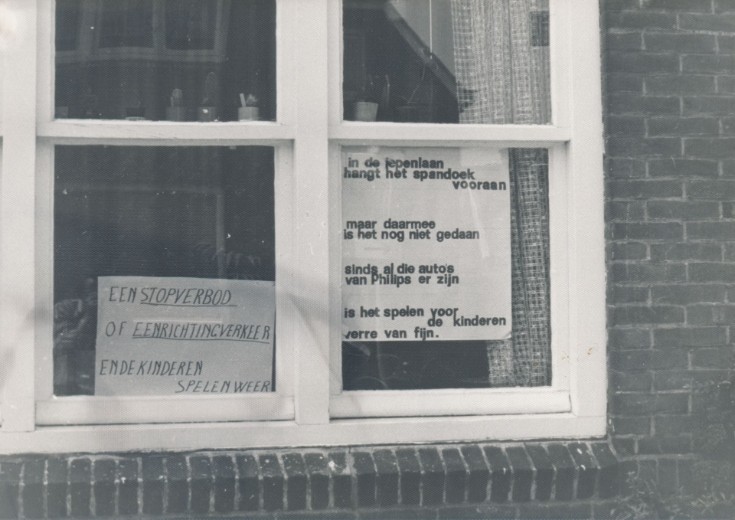 EEN STOPVERBOD
OF EENRICHTINGVERKEER
EN DE KINDEREN
SPELEN WEER
in de iepenlaan
hangt het spandoek
vooraan
maar daarmee
is het nog niet gedaan
sinds al die auto's
van Philips er zijn
is het spelen voor
de kinderen
verre van fijn.